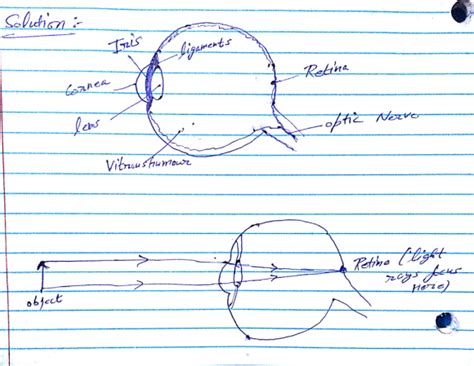 Solution :-
Iris
ligaments
Cornea
Retina
lens
optic Nerve
Vitroushumour
Retina (light
rays focus
here)
object